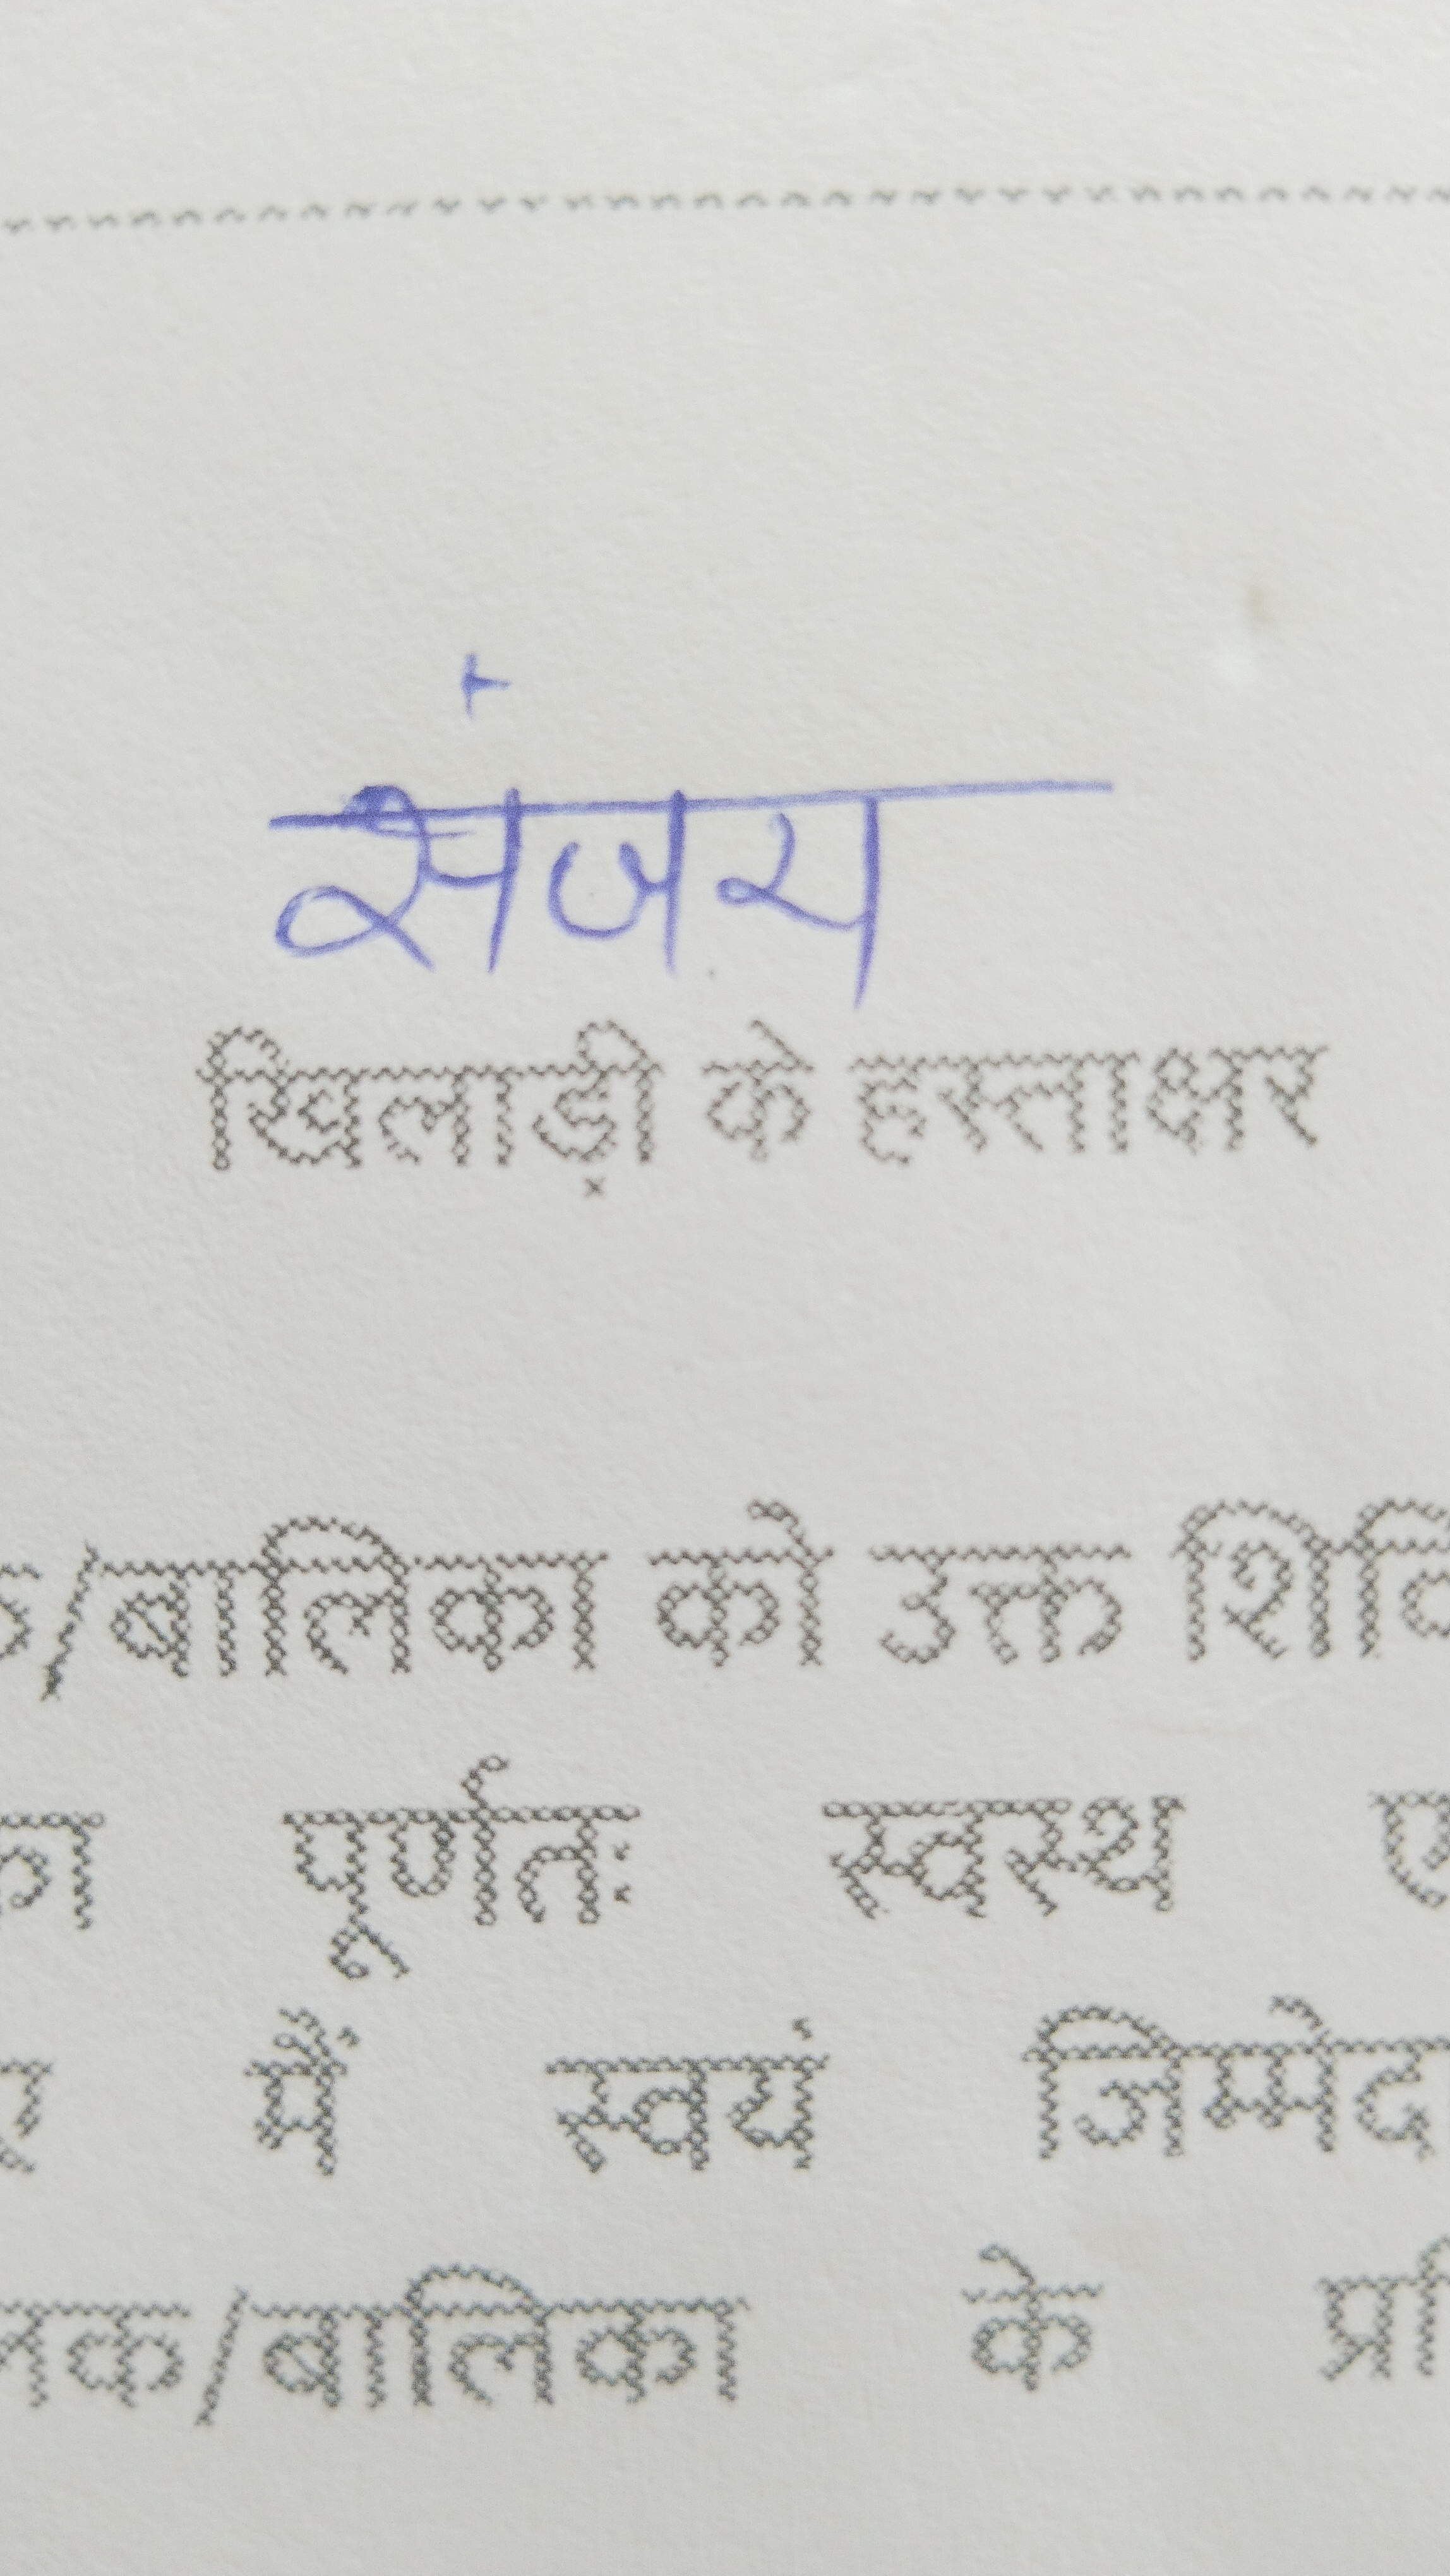 संजय
खिलाड़ी के हस्ताक्षर
/बालिका को उक्त
पूर्णतः स्वस्थ
मैं स्वयं
/बालिका के